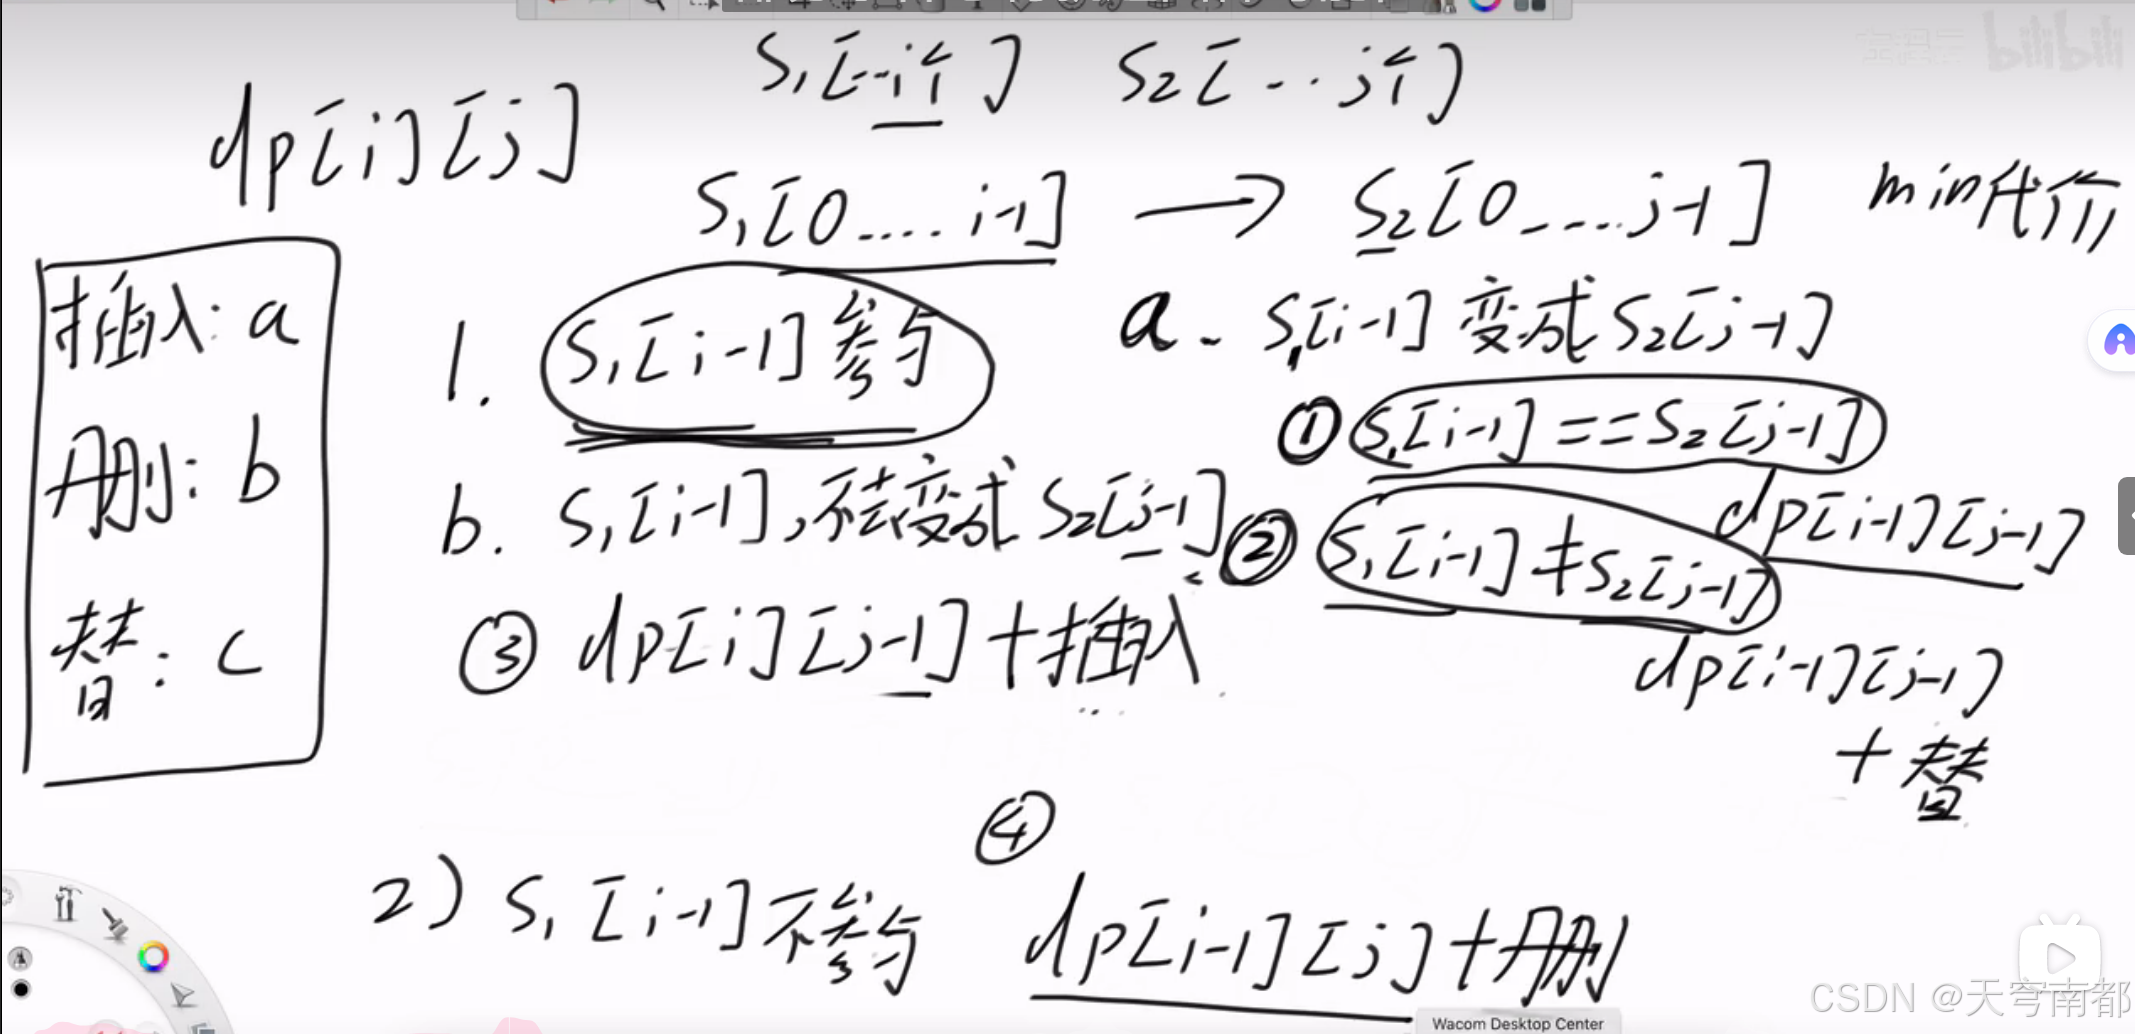 bilibili
S₁[--i个] S₂[--·j个]
dp[i][j]
S₁[0....i-1] → S₂[0....j-1] min代价
插入: a
删: b
替: c
1. S₁[i-1]参与
a. S₁[i-1] 变成 S₂[j-1]
① S₁[i-1]==S₂[j-1]
dp[i-1][j-1]
b. S₁[i-1],不去变成 S₂[j-1]
② S₁[i-1]≠S₂[j-1]
dp[i-1][j-1]
+替
③ dp[i][j-1]+插入
④
2) S₁[i-1]不参与 dp[i-1][j]+删
CSDN @天穹南都
Wacom Desktop Center